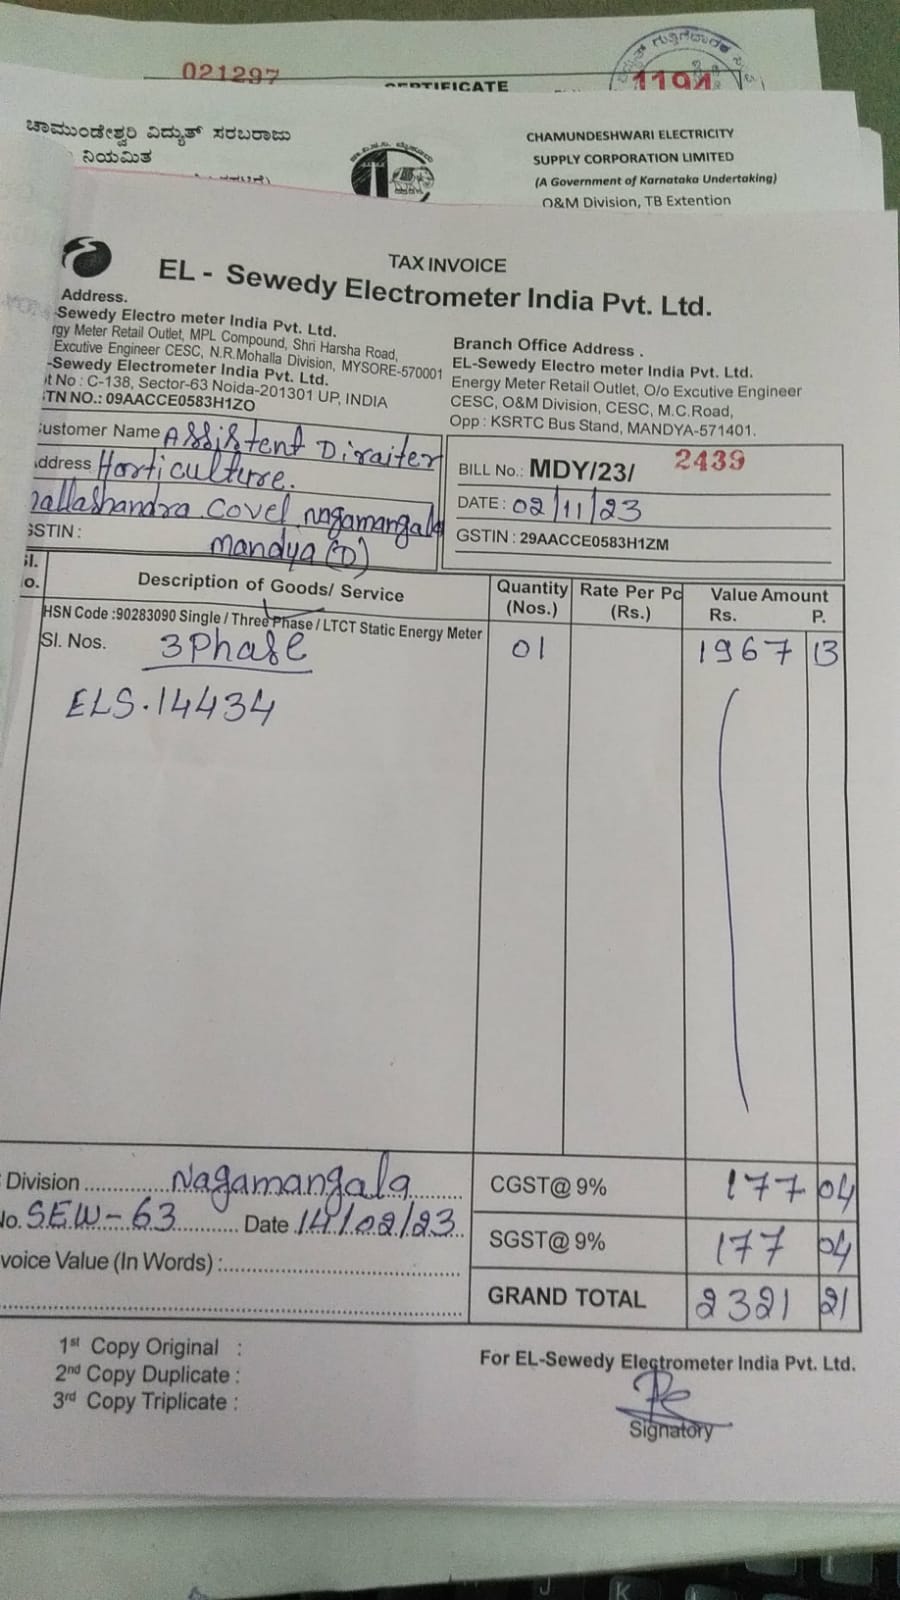 021297
CERTIFICATE
1194
ಚಾಮುಂಡೇಶ್ವರಿ ವಿದ್ಯುತ್ ಸರಬರಾಜು
ನಿಯಮಿತ
CHAMUNDESHWARI ELECTRICITY
SUPPLY CORPORATION LIMITED
(A Government of Karnataka Undertaking)
O&M Division, TB Extention
TAX INVOICE
EL - Sewedy Electrometer India Pvt. Ltd.
Address.
Sewedy Electro meter India Pvt. Ltd.
rgy Meter Retail Outlet, MPL Compound, Shri Harsha Road,
Excutive Engineer CESC, N.R.Mohalla Division, MYSORE-570001
-Sewedy Electrometer India Pvt. Ltd.
t No : C-138, Sector-63 Noida-201301 UP, INDIA
TN NO.: 09AACCE0583H1ZO
Branch Office Address .
EL-Sewedy Electro meter India Pvt. Ltd.
Energy Meter Retail Outlet, O/o Excutive Engineer
CESC, O&M Division, CESC, M.C.Road,
Opp : KSRTC Bus Stand, MANDYA-571401.
ustomer Name Assistent Diraiter
ddress Horticulture.
allashandra Covel, Nagamangala
GSTIN : Mandya (D)
BILL No.: MDY/23/ 2439
DATE : 02/11/23
GSTIN : 29AACCE0583H1ZM
Sl. No. Description of Goods/ Service Quantity (Nos.) Rate Per Pc (Rs.) Value Amount Rs. P.
HSN Code :90283090 Single / Three Phase / LTCT Static Energy Meter
Sl. Nos. 3 Phase 01 1967 13
ELS.14434
Division Nagamangala CGST@ 9% 177 04
No. SEW-63 Date 14/02/23 SGST@ 9% 177 04
voice Value (In Words) :
GRAND TOTAL 2321 21
1st Copy Original :
2nd Copy Duplicate :
3rd Copy Triplicate :
For EL-Sewedy Electrometer India Pvt. Ltd.
Signatory
J K